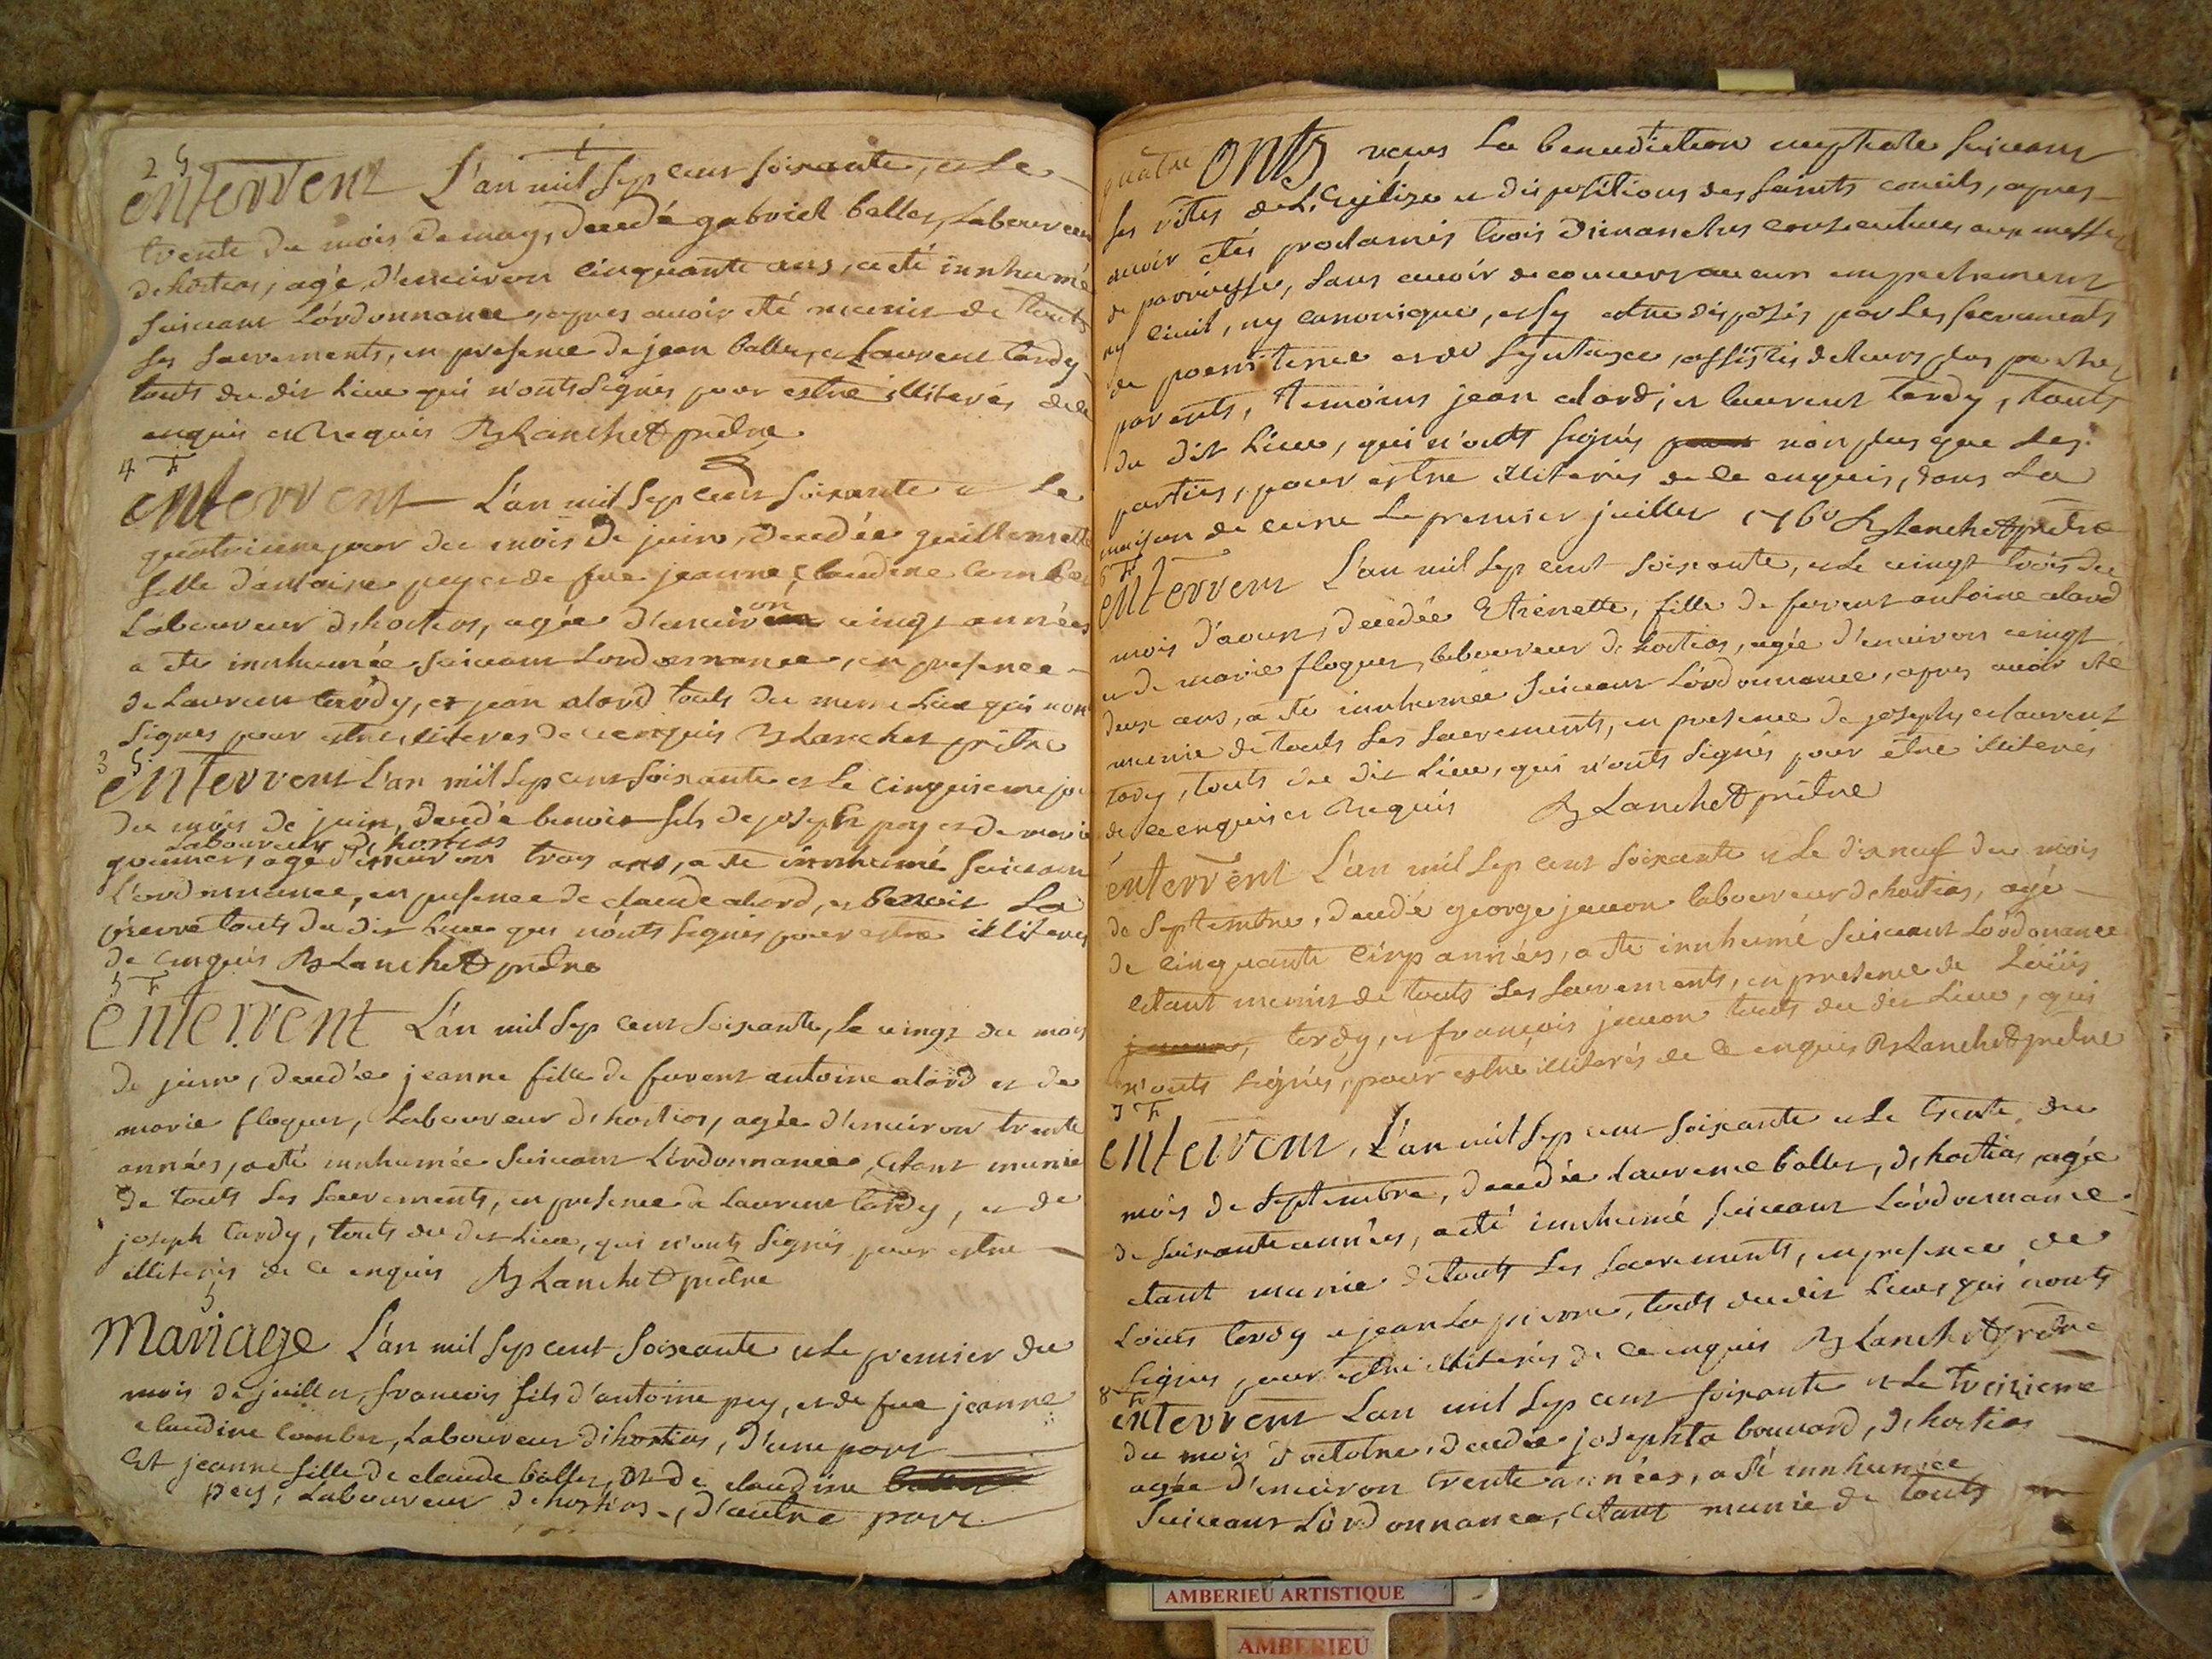 2 G
enterrent L'an mil sept cent soixante, et le
trente du mois de may, decedé gabriel ballet, Laboureur
d'hostias, agé d'environ cinquante ans, a eté innhumé
suivant L'ordonnance, apres avoir eté munis de touts
ses sacrements, en presence de jean ballet, et Laurent tardy
touts du dit Lieu qui n'onts signés pour estre illiterés de ce
enquis et Requis Blanchet prêtre
4 F
enterrent L'an mil sept cent soixante et le
quatrieme jour du mois de juin, decedée guillemette
fille d'antoine pey et de fue jeanne claudine
Laboureur d'hostias, agée d'environ vingt années
a eté innhumée suivant Lordonnance, en presence
de Laurent tardy, et jean alord touts du meme Lieu qui non
signes pour estre illiteres de ce enquis Blanchet prêtre
3 G
enterrent L'an mil sept cent soixante et le cinquieme jo
du mois de juin, decedé benoit fils de joseph pey et de marie
Laboureur d'hostias
agé d'environ trois ans, a eté innhumé suivant
L'ordonnance, en presence de claude alord, et Benoit La
pierre touts du dit Lieu qui n'onts signés pour estre illiterés
de ce enquis Blanchet prêtre
5 F
enterrent L'an mil sept cent soixante, le vingt du mois
de juin, decedée jeanne fille de furent antoine alord et de
marie floquet, Laboureur d'hostias, agée d'environ trente
années, a eté innhumée suivant L'ordonnance, etant munie
de touts ses sacrements, en presence de Laurent tardy, et de
joseph tardy, touts du dit Lieu, qui n'onts signés pour estre
illiterés de ce enquis Blanchet prêtre
Mariage L'an mil sept cent soixante et le premier du
mois de juillet, francois fils d'antoine pey, et de fue jeanne
claudine, Laboureur d'hostias, d'une part
Et jeanne fille de claude ballet, et de claudine
pey, Laboureur d'hostias, d'autre part
quatre Onts reçus La benediction nuptiale suivant
les rites de L'Eglise et dispositions des saints concils, apres
avoir etés proclamés trois dimanches consecutives aux messes
de parroisse, sans avoir decouvert aucun empechement
ny civil, ny canonique, et s'y estre disposés par Les sacrements
de poenitence et de, assistés de leurs plus proches
parents, temoins jean alord, et laurent tardy, touts
du dit Lieu, qui n'onts signés non plus que Les
parties, pour estre illiterés de ce enquis, dans La
maison de cure Le premier juillet 1760 Blanchet prêtre
6 F
enterrent L'an mil sept cent soixante, et le vingt trois du
mois d'aoust, decedée Etienette, fille de furent antoine alord
et de marie floquet, laboureur d'hostias, agée d'environ vingt
deux ans, a eté innhumée suivant L'ordonnance, apres avoir eté
munie de touts ses sacrements, en presence de joseph, et laurent
tardy, touts du dit Lieu, qui n'onts signés pour etre illiterés
de ce enquis et Requis Blanchet prêtre
enterrent L'an mil sept cent soixante et le dixneuf du mois
de septembre, decedé george juvon laboureur d'hostias, agé
de cinquante cinq années, a eté innhumé suivant L'ordonance
etant munis de touts ses sacrements, en presence de Loüis
tardy, et françois juvon touts du dit Lieu, qui
n'onts signés, pour estre illiterés de ce enquis Blanchet prêtre
7 F
enterrent, L'an mil sept cent soixante et le trente du
mois de septembre, decedée Laurence ballet, d'hostias, agée
de soixante années, a eté innhumé suivant L'ordonnance
etant munie de touts ses sacrements, en presence de
Loüis tardy et jean La pierre, touts du dit Lieu, qui nonts
signés pour estre illiterés de ce enquis Blanchet prêtre
8 F
enterrent Lan mil sept cent soixante et le treizieme
du mois d'octobre, decedée josephta bouvard, d'hostias
agée d'environ trente années, a eté innhumée
suivant L'ordonnance, etant munie de touts
AMBERIEU ARTISTIQUE
AMBERIEU